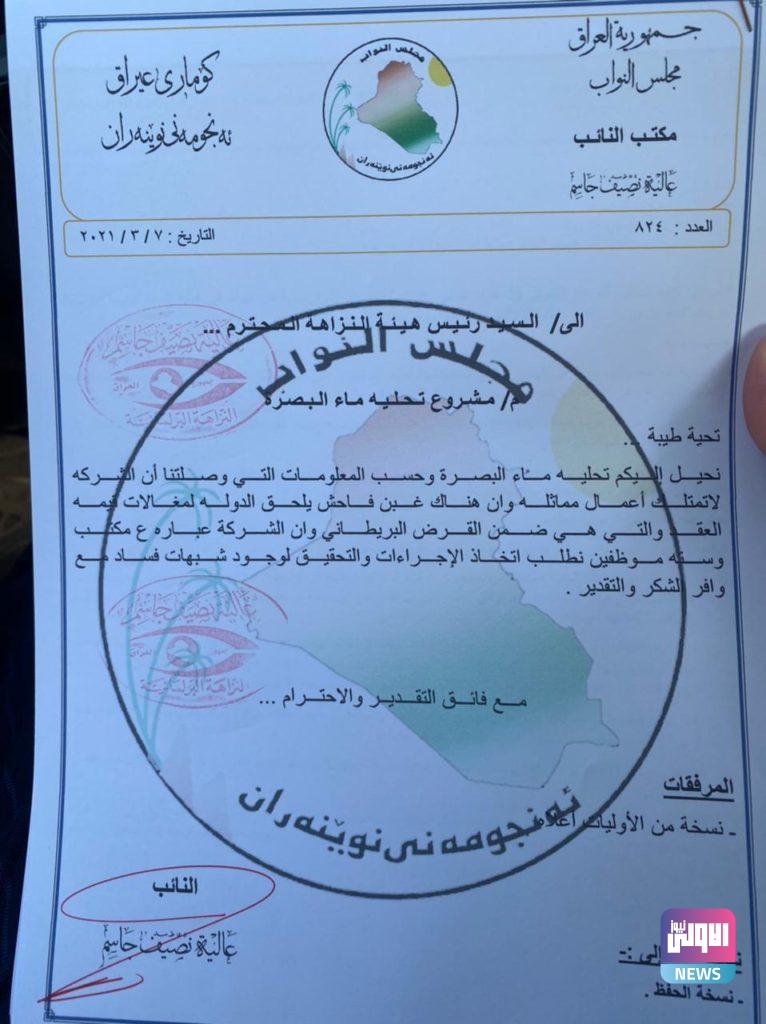 جمهورية العراق
مجلس النواب
مكتب النائب
عالية نصيف جاسم
مجلس النواب
ئەنجومەنی نوێنەران
كۆماری عیراق
ئەنجومەنی نوێنەران
العدد : ٨٢٤
التاريخ : ٢٠٢١ / ٣ / ٧
الى/ السيد رئيس هيئة النزاهة المحترم ...
م/ مشروع تحليه ماء البصرة
تحية طيبة ...
نحيل اليكم تحليه ماء البصرة وحسب المعلومات التي وصلتنا أن الشركه
لاتمتلك أعمال مماثله وان هناك غبن فاحش يلحق الدوله لمغالات قيمه
العقد والتي هي ضمن القرض البريطاني وان الشركة عباره ع مكتب
وسته موظفين نطلب اتخاذ الإجراءات والتحقيق لوجود شبهات فساد مع
وافر الشكر والتقدير .
مع فائق التقدير والاحترام ...
المرفقات
ـ نسخة من الأوليات أعلاه
النائب
عالية نصيف جاسم
الى :-
ـ نسخة الحفظ .
مجلس النواب
ئەنجومەنی نوێنەران
عالية نصيف جاسم
العراق
النزاهة البرلمانية
عالية نصيف جاسم
العراق
النزاهة البرلمانية
الاولى نيوز
NEWS